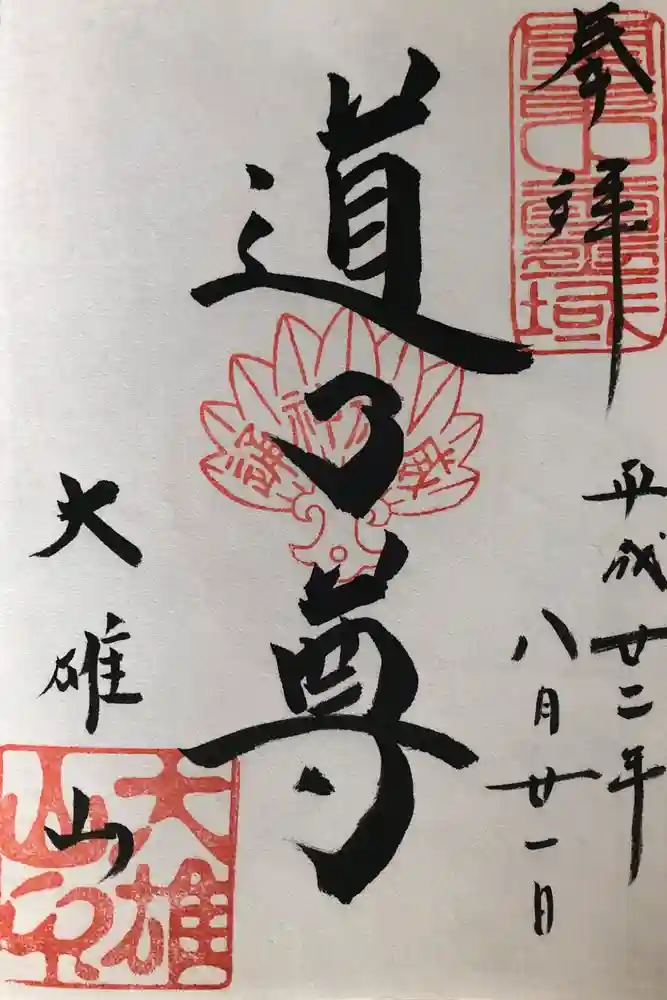 奉拝
平成廿二年
八月廿一日
道了尊
大雄山
大雄山印